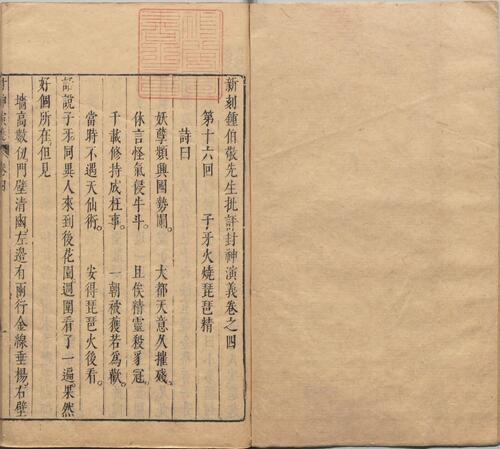 新刻鍾伯敬先生批評封神演義卷之四
第十六回 子牙火燒琵琶精
詩曰
妖孽類興國勢闌。 大都天意久摧殘。
休言怪氣侵牛斗。 且俟精靈殺豸冠。
千載修持成枉事。 一朝被獲若為歡。
當時不遇天仙術。 安得琵琶火後看。
話說子牙同異人來到後花園週圍看了一遍果然
好個所在但見
墻高數仞門壁清幽左邊有兩行金線垂楊右壁
封神演義 卷四